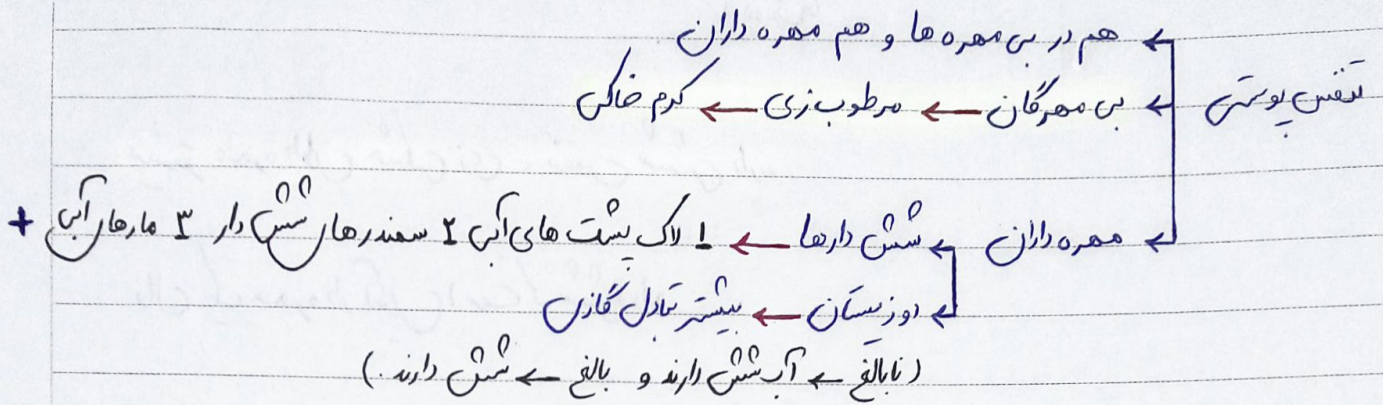 هم در بی مهره ها و هم مهره داران
تنفس پوستی
بی مهرگان ← مرطوب زی ← کرم خاکی
مهره داران
شش دارها ← ۱ لاک پشت های آبی ۲ سمندرهای شش دار ۳ مارهای آبی +
دوزیستان ← بیشتر تبادل گازی
(نابالغ ← آبشش دارند و بالغ ← شش دارند.)